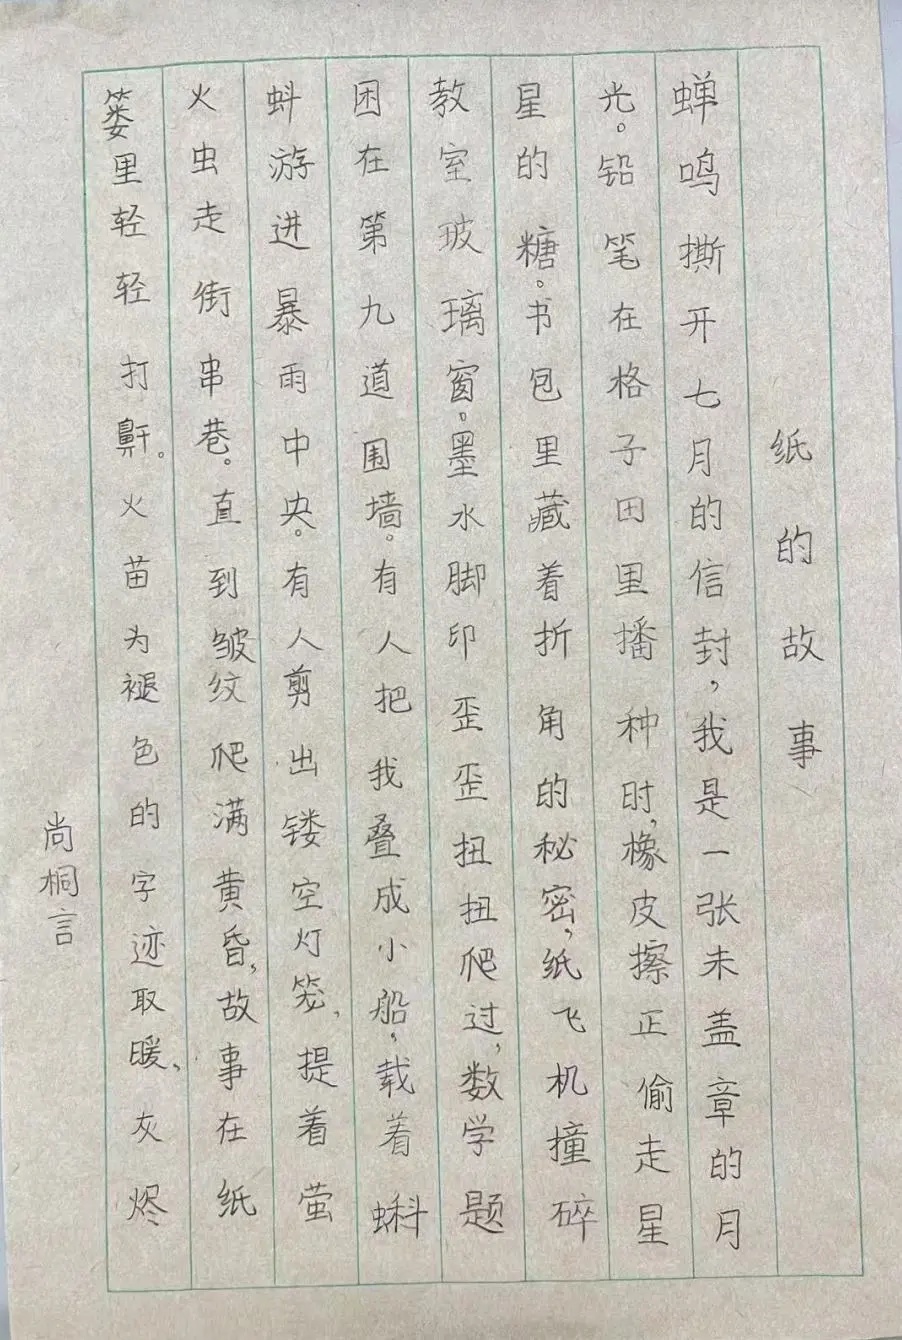 纸的故事
蝉鸣撕开七月的信封,我是一张未盖章的月
光。铅笔在格子田里播种时,橡皮擦正偷走星
星的糖。书包里藏着折角的秘密,纸飞机撞碎
教室玻璃窗。墨水脚印歪歪扭扭爬过,数学题
困在第九道围墙。有人把我叠成小船,载着蝌
蚪游进暴雨中央。有人剪出镂空灯笼,提着萤
火虫走街串巷。直到皱纹爬满黄昏,故事在纸
篓里轻轻打鼾。火苗为褪色的字迹取暖、灰烬
尚桐言